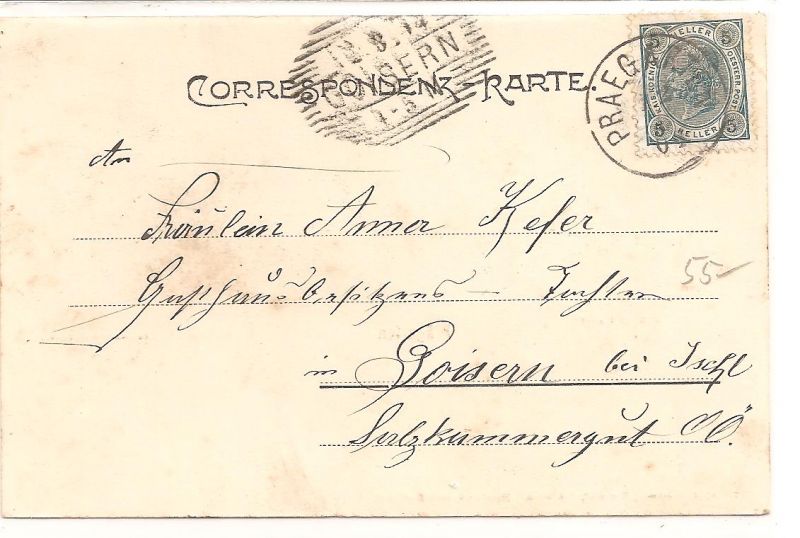 12.8.04
GOISERN
CORRESPONDENZ-KARTE.
PRAEG
5 HELLER 5
KAIS. KOENIGL. OESTERR. POST
5 HELLER 5
An
Fräulein Anna Kefer
Gasthausbesitzers – Tochter
55-
in Goisern bei Ischl
Salzkammergut OÖ.